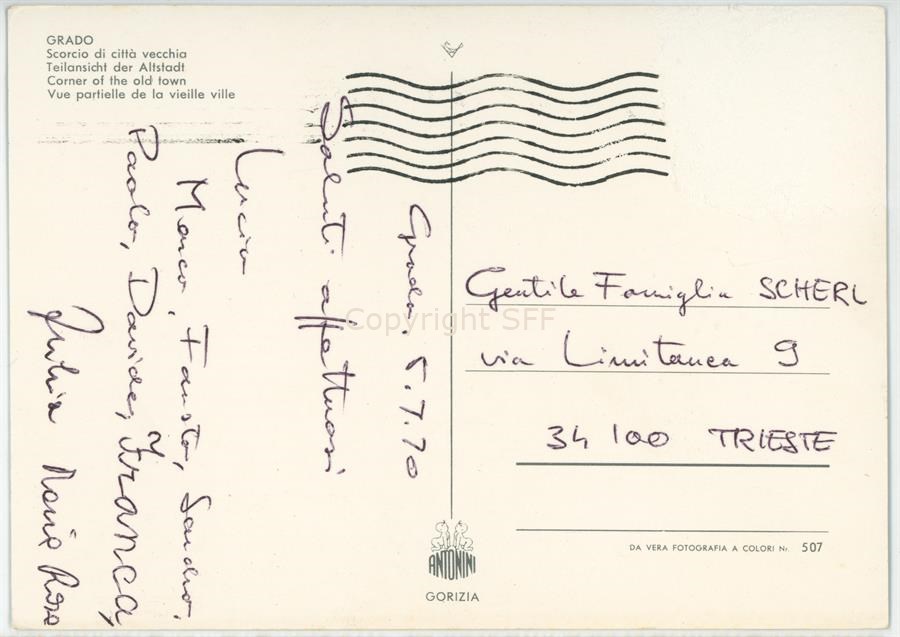 GRADO
Scorcio di città vecchia
Teilansicht der Altstadt
Corner of the old town
Vue partielle de la vieille ville
Grado, 5.7.70
Saluti affettuosi
Lucia
Marco, Fausto, Sandro,
Paolo, Davide, FRANCA,
Maria Rosa
Gentile Famiglia SCHERL
via Limitanea 9
34100 TRIESTE
DA VERA FOTOGRAFIA A COLORI Nr. 507
ANTONINI
GORIZIA
Copyright SFF